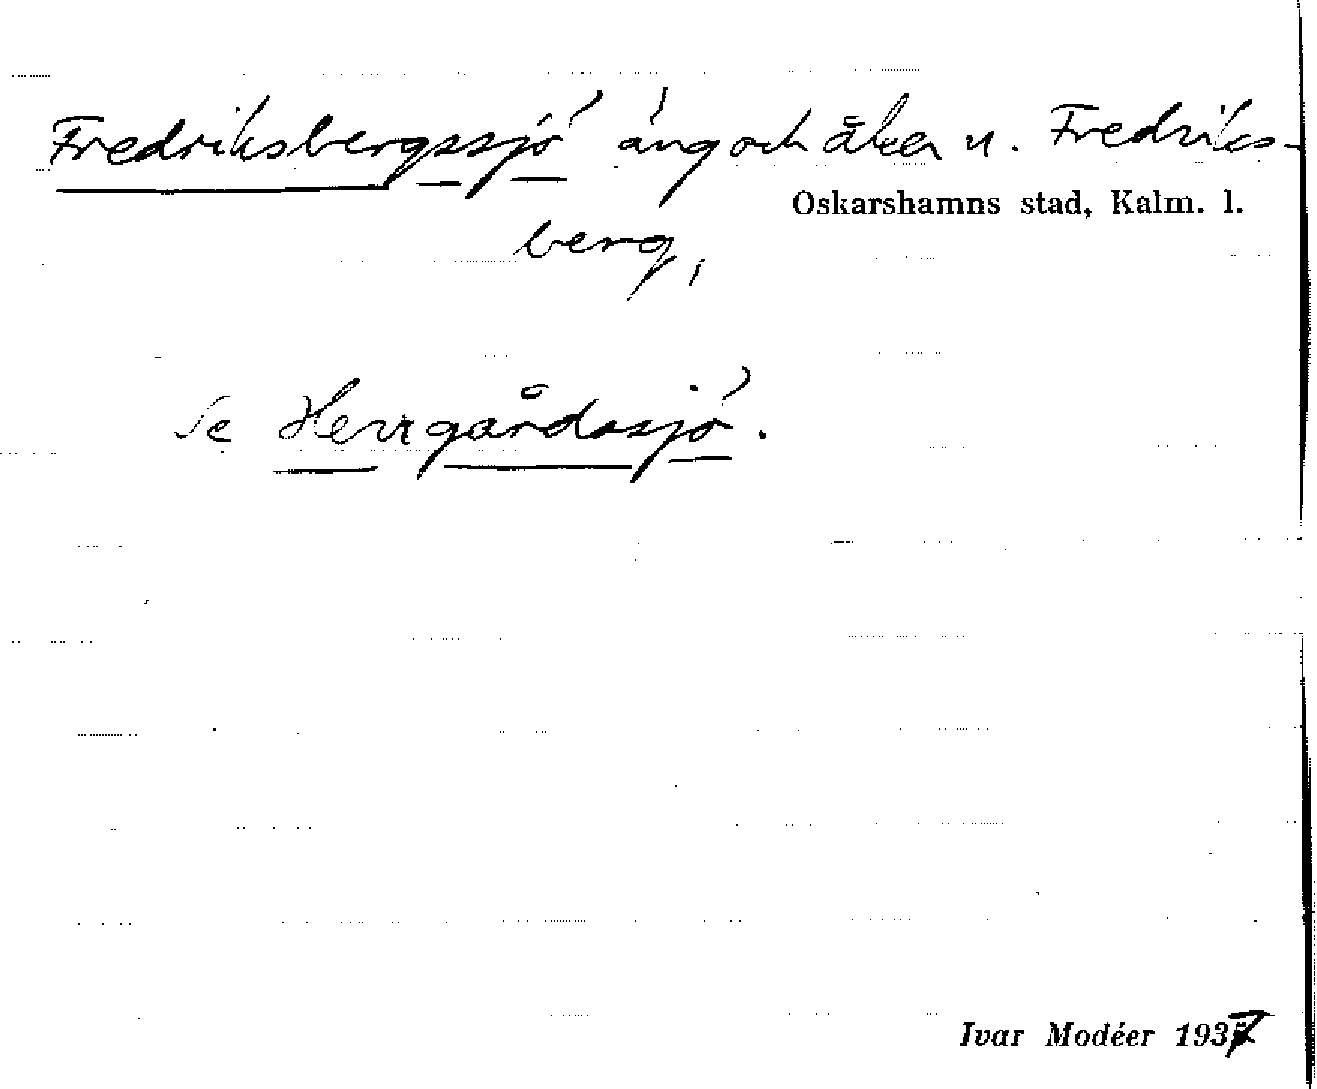 Fredriksbergssjö äng och åker u. Fredriks-
Oskarshamns stad, Kalm. l.
berg,
Se Herrgårdssjö.
Ivar Modéer 1937